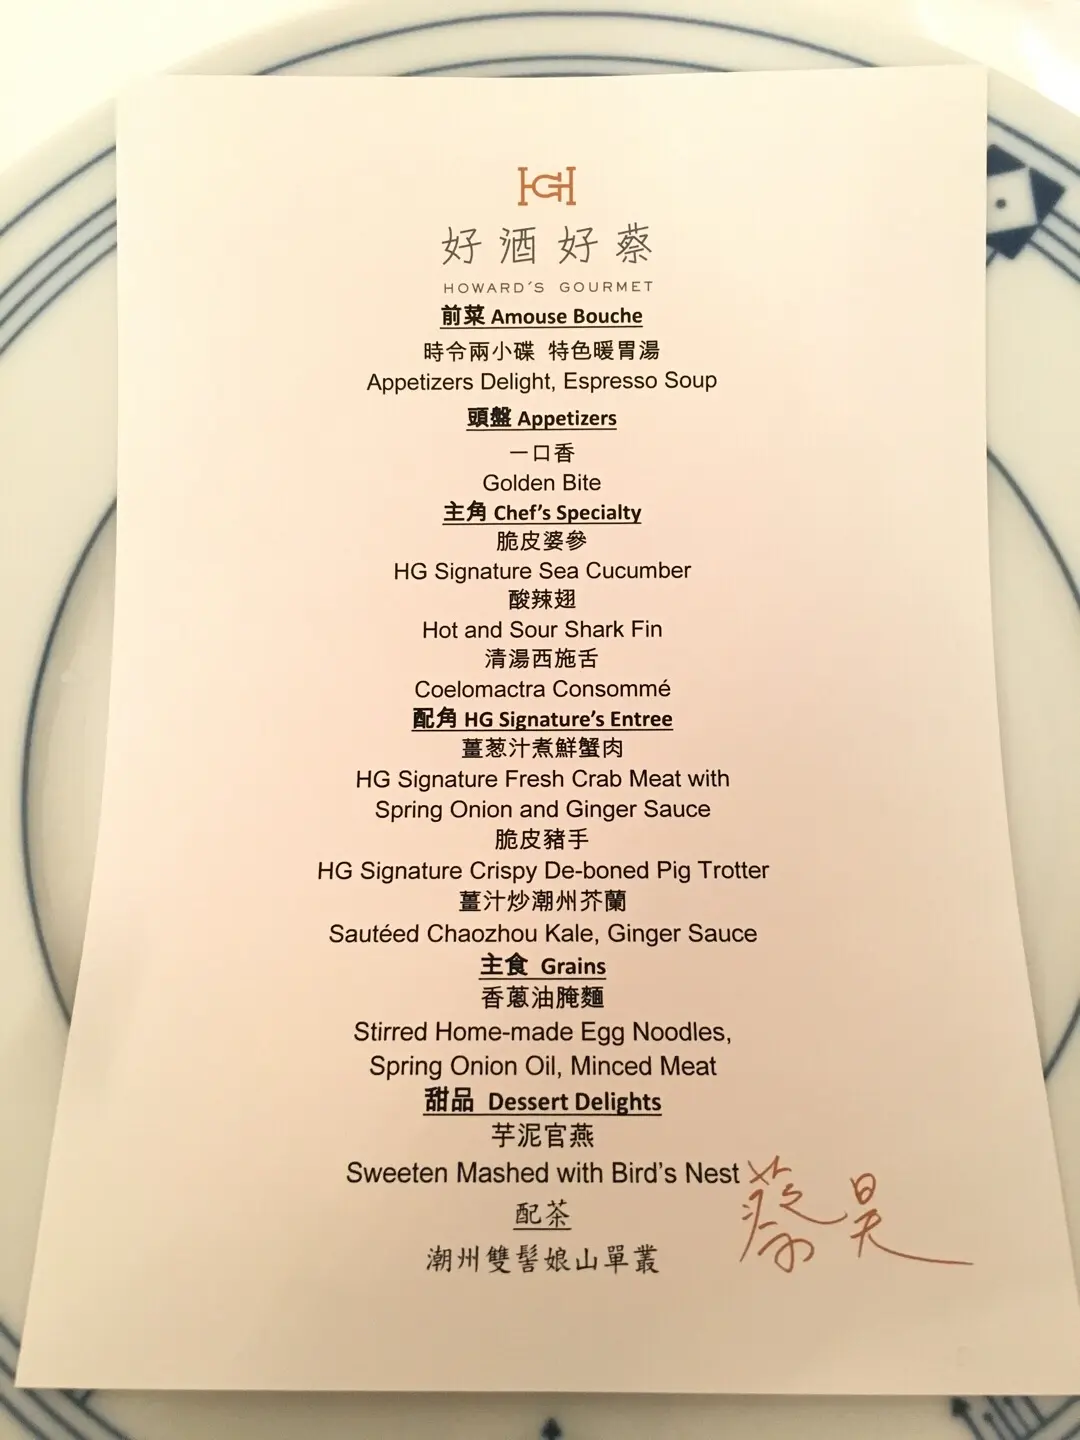 HGH
好酒好蔡
HOWARD'S GOURMET
前菜 Amouse Bouche
時令兩小碟 特色暖胃湯
Appetizers Delight, Espresso Soup
頭盤 Appetizers
一口香
Golden Bite
主角 Chef's Specialty
脆皮婆參
HG Signature Sea Cucumber
酸辣翅
Hot and Sour Shark Fin
清湯西施舌
Coelomactra Consommé
配角 HG Signature's Entree
薑葱汁煮鮮蟹肉
HG Signature Fresh Crab Meat with
Spring Onion and Ginger Sauce
脆皮豬手
HG Signature Crispy De-boned Pig Trotter
薑汁炒潮州芥蘭
Sautéed Chaozhou Kale, Ginger Sauce
主食 Grains
香蔥油腌麵
Stirred Home-made Egg Noodles,
Spring Onion Oil, Minced Meat
甜品 Dessert Delights
芋泥官燕
Sweeten Mashed with Bird's Nest
配茶
潮州雙髻娘山單叢
蔡昊